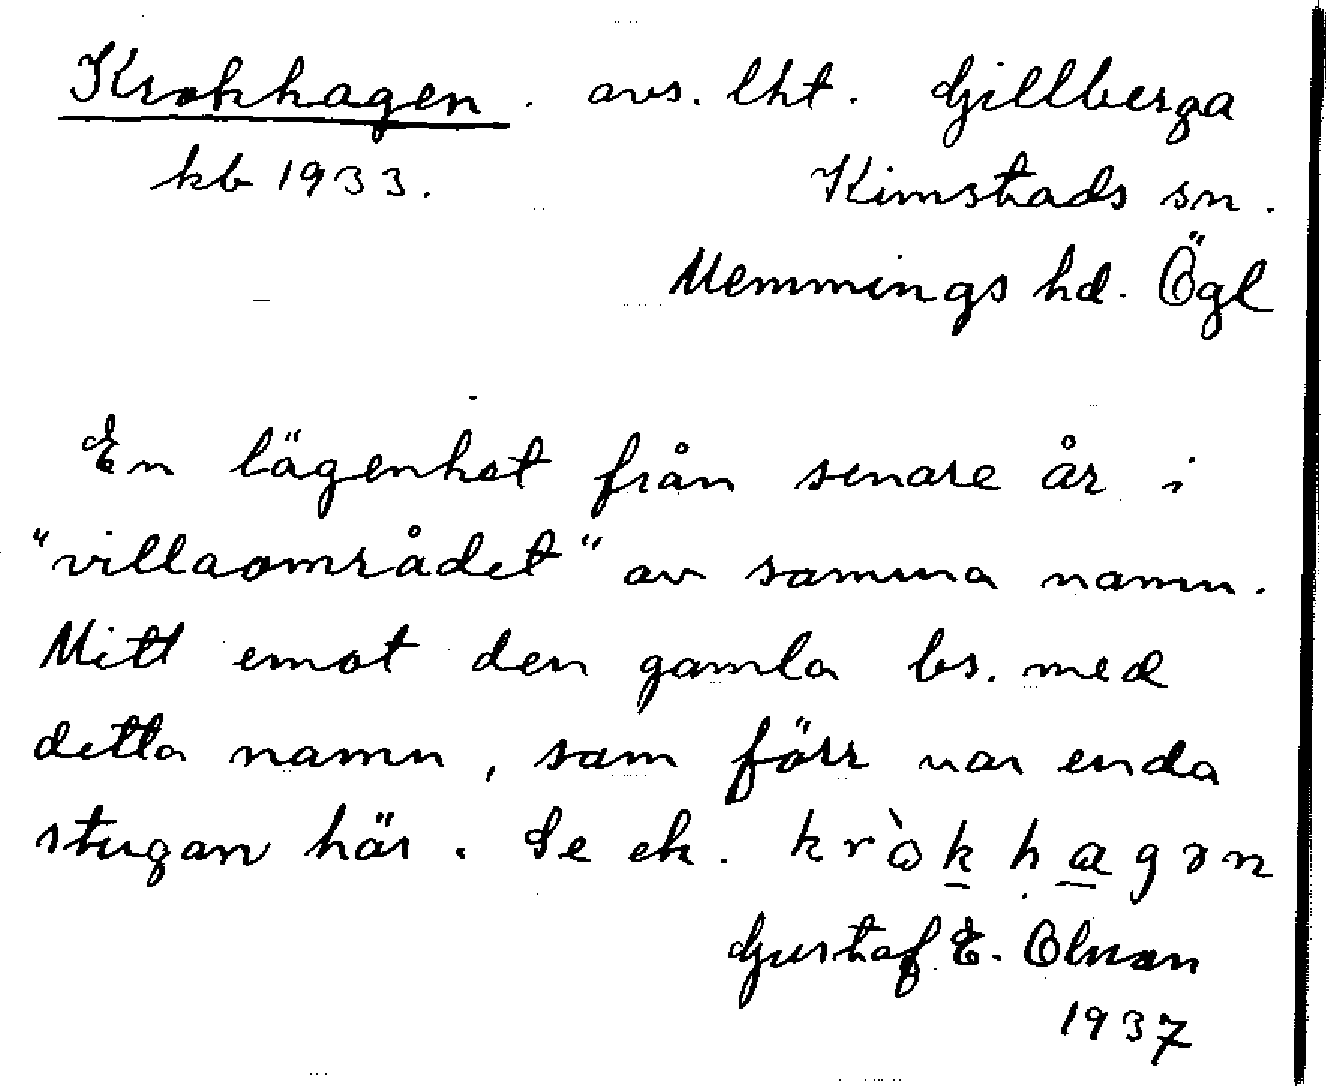 Krokhagen. avs. lht. Gillberga
kb 1933. Kimstads sn.
Memmings hd. Ögl
En lägenhet från senare år i
"villaområdet" av samma namn.
Mitt emot den gamla bs. med
detta namn, som förr var enda
stugan här. Se ek. kròkhagən
Gustaf E. Olsson
1937